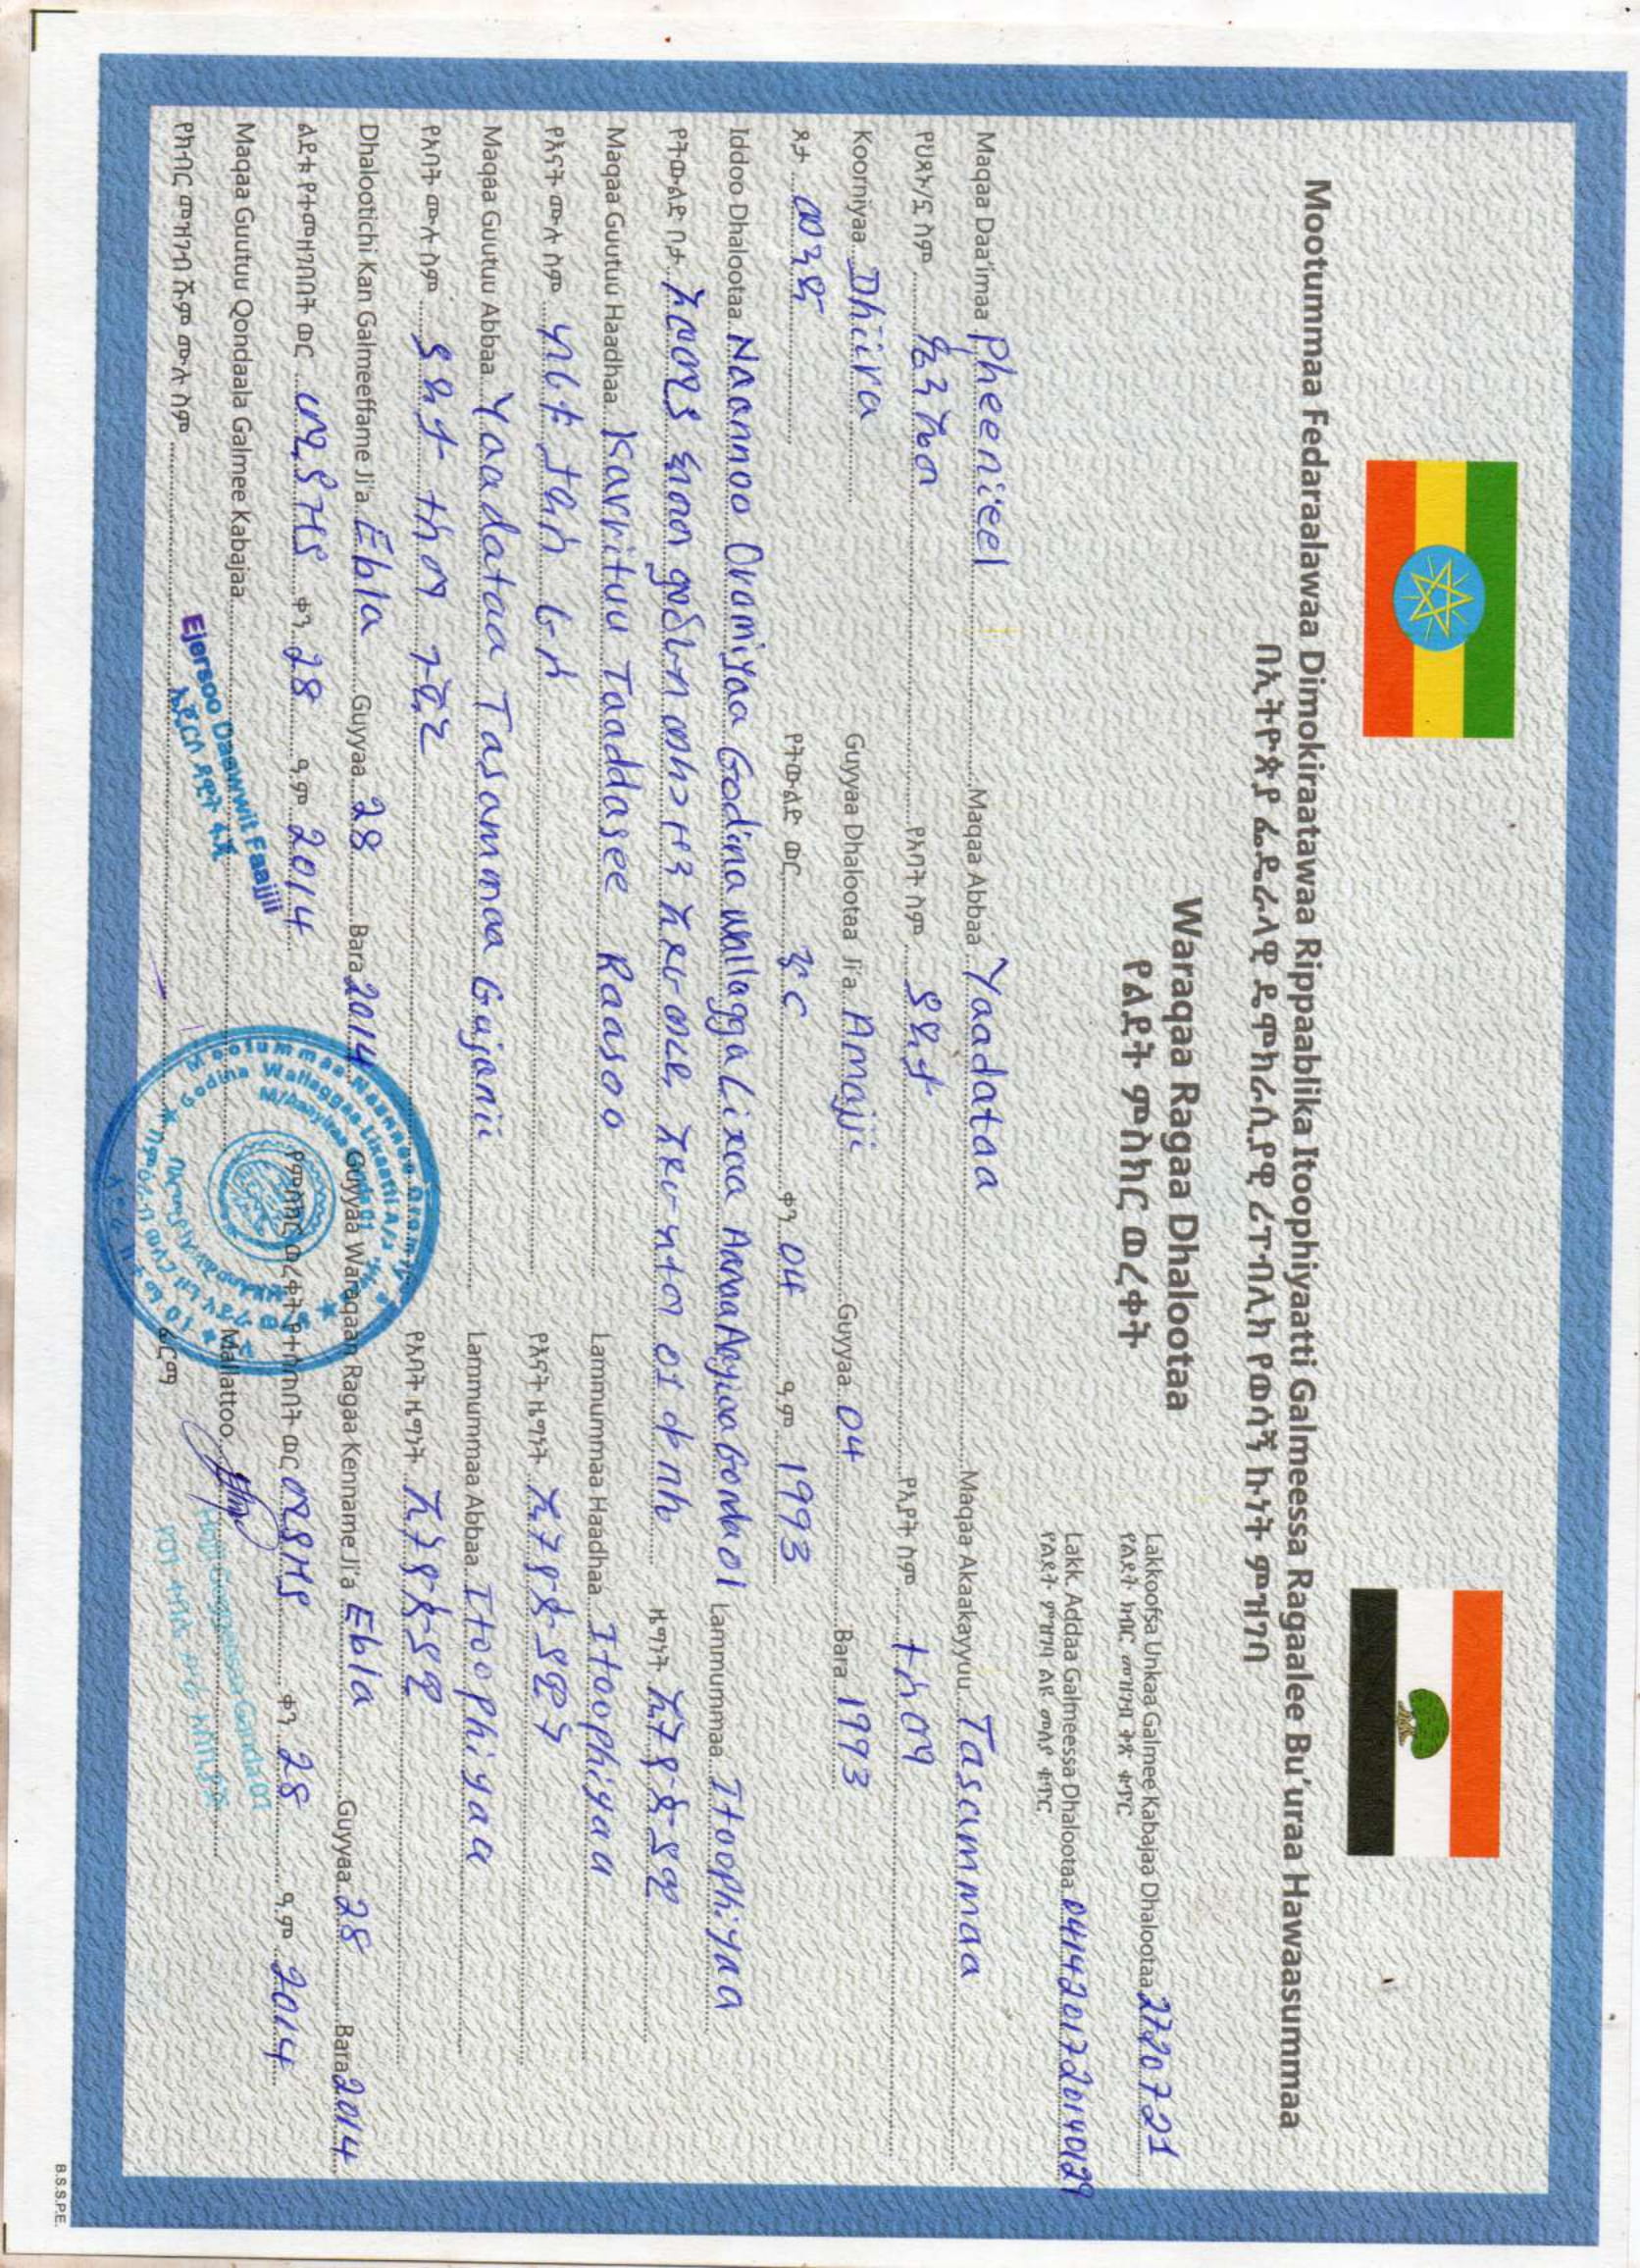 Mootummaa Fedaraalawaa Dimokiraatawaa Rippaablika Itoophiyaatti Galmeessa Ragaalee Bu'uraa Hawaasummaa
በኢትዮጵያ ፌዴራላዊ ዴሞክራሲያዊ ሪፐብሊክ የወሳኝ ኩነት ምዝገባ
Waraqaa Ragaa Dhalootaa
የልደት ምስክር ወረቀት
Lakkoofsa Unkaa Galmee Kabajaa Dhalootaa 2720721
የልደት ክብር መዝገብ ቅጽ ቁጥር
Lakk. Addaa Galmeessa Dhalootaa
የልደት ምዝገባ ልዩ መለያ ቁጥር
Maqaa Daa'imaa Pheeni'eel Maqaa Abbaa Yaadataa Maqaa Akaakayyuu Tasammaa
የህጻኑ/ኗ ስም የአባት ስም ያዳታ የአያት ስም ተሰማ
Koorniyaa Dhiira Guyyaa Dhalootaa Ji'a Amajji Guyyaa 04 Bara 1993
ጾታ ወንድ የትውልድ ወር ጥር ቀን 04 ዓ.ም 1993
Iddoo Dhalootaa Naannoo Oromiyaa Godina Wallagga Lixaa Lammummaa Itoophiyaa
የትውልድ ቦታ ኦሮሚያ ክልል ምዕራብ ወለጋ ዞን ዜግነት ኢትዮጵያዊ
Maqaa Guutuu Haadhaa Karrituu Taaddasee Raasoo Lammummaa Haadhaa Itoophiyaa
የእናት ሙሉ ስም ካሪቱ ታደሰ ራሶ የእናት ዜግነት ኢትዮጵያዊት
Maqaa Guutuu Abbaa Yaadataa Tasammaa Gujanii Lammummaa Abbaa Itoophiyaa
የአባት ሙሉ ስም ያዳታ ተሰማ ጉጀኒ የአባት ዜግነት ኢትዮጵያዊ
Dhalootichi Kan Galmeeffame Ji'a Ebla Guyyaa 28 Bara 2014 Guyyaa Waraqaan Ragaa Kenname Ji'a Ebla Guyyaa 28 Bara 2014
ልደቱ የተመዘገበበት ወር ሚያዚያ ቀን 28 ዓ.ም 2014 የምስክር ወረቀት የተሰጠበት ወር ሚያዚያ ቀን 28 ዓ.ም 2014
Maqaa Guutuu Qondaala Galmee Kabajaa Mallattoo
የክብር መዝገብ ሹም ሙሉ ስም ፊርማ
Ejersoo Daawwit Faajjii
ኤጀርሶ ዳዊት ፋጂ
B.S.S.P.E.